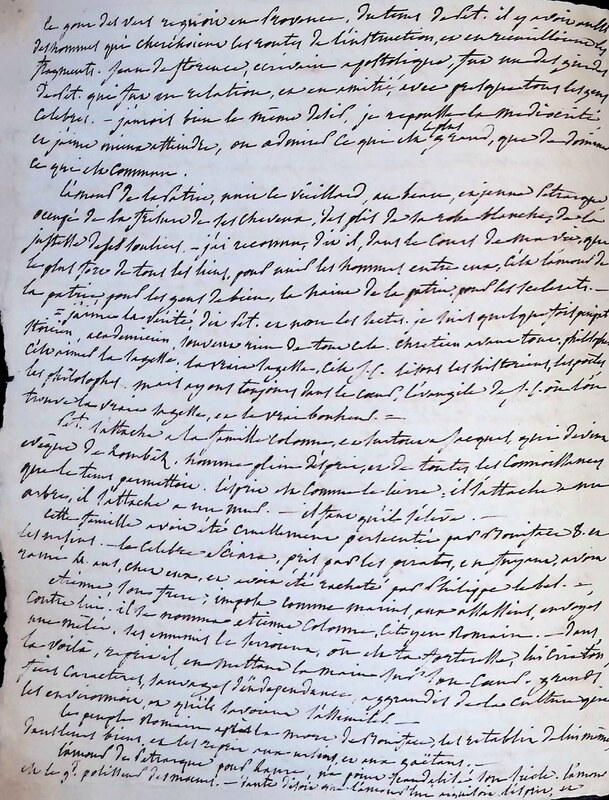 Le gout des vers regnoit en Provence, du tems de Pet. il y avoit aussi
des hommes qui cherchoient les routes de l'instruction, et en recueilloient les
fragments. Jean de florence, ecrivain apostolique, fut un des guides
de Pet. qui fut en relation, et en amitié, avec presque tous les gens
celebres. — j'aurois bien le même desir, je repousse la médiocrité
et j'aime mieux attendre, ou admirer ce qui est plus grand, que de dominer
ce qui est commun.
l'amour de la patrie, unit le vieillard, au beau, et jeune Petrarque
occupé de la frisure de ses cheveux, des plis de sa robe blanche, de la
justesse de ses souliers. — j'ai reconnu, dit il, dans le cours de ma vie, que
le plus fort de tous les liens, pour unir les hommes entre eux, c'est l'amour de
la patrie pour les gens de bien, la haine de la patrie, pour les scelerats. —
= j'aime la vérité, dit Pet. et non les sectes. je suis quelque fois
stoïcien, academicien, souvent rien de tout cela. chretien avant tout, philosophe
c'est aimer la sagesse. la vraie sagesse, c'est J. C. lisons les historiens, les poetes
les philosophes. mais ayons toujours dans le coeur, l'évangile de J. C. où l'on
trouve la vraie sagesse, et le vrai bonheur. =
Pet. s'attache a la famille colonne, et surtout a Jacques, qui devint
evêque de Lombès. homme plein d'esprit, et de toutes les connoissances
que le tems, permettoit. l'esprit est comme le lierre, il s'attache a un
arbre, il s'attache a un mur. — et faut qu'il s'élève. —
cette famille avoit été cruellement persecutée par Boniface 8. et
les ursins. — le celebre Sciarra, pris par les pirates, en fuyant, avoit
ramé 4. ans, chez eux, et avoit été racheté par Philippe le bel. —
etienne son frere; impose comme marius, aux assassins, envoyés
contre lui. il se nomma etienne Colonne, Citoyen Romain. — Dans
une mêlée, ses ennemis le serroient, ou est ta forteresse, lui crioit on
la voilà, reprit il, en mettant la main sur son coeur. grands,
fiers caracteres, sauvages d'independance, aggrandis de la culture qui
les environnoit, et qu'ils savoient s'assimiler. —
le peuple Romain après la mort de Boniface, les rétablit de lui même
dans leurs biens, et les reprit aux ursins, et aux gaëtans. —
l'amour de Petrarque pour Laure, n'a point scandalisé son siecle. l'amour
est le gd. polisseur des moeurs. —